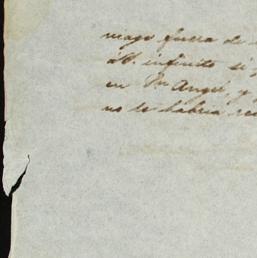 mayo fuera de
á V. infinito si
en Dn Angel, y
no le habria